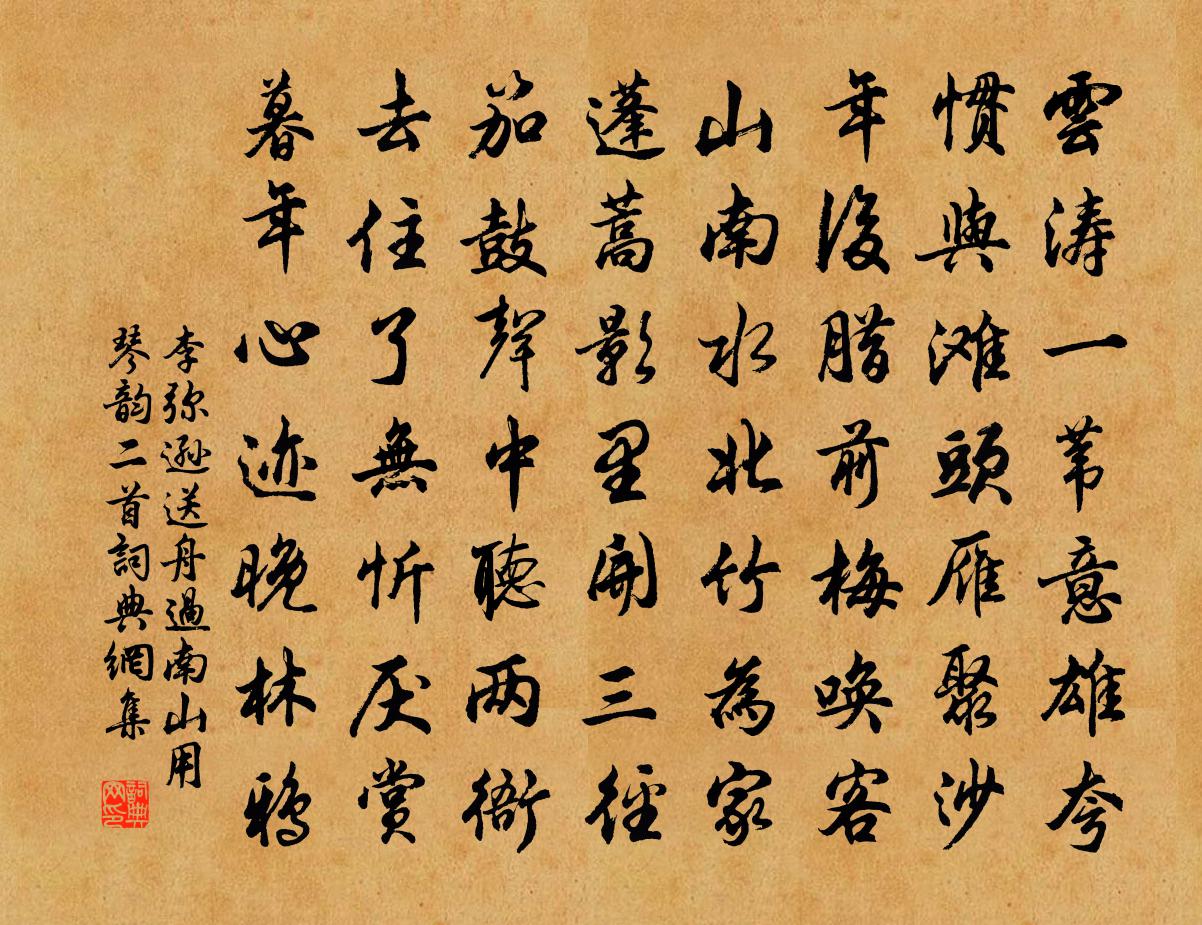 雲涛一苇意雄夸
慣與滩頭雁聚沙
年後腊前梅唤客
山南水北竹為家
蓬蒿影里開三徑
笳鼓聲中聽两衙
去住了無忻厌赏
暮年心迹晚林鸦
李弥逊送舟過南山用
琴韵二首詞典網集
詞典
网印